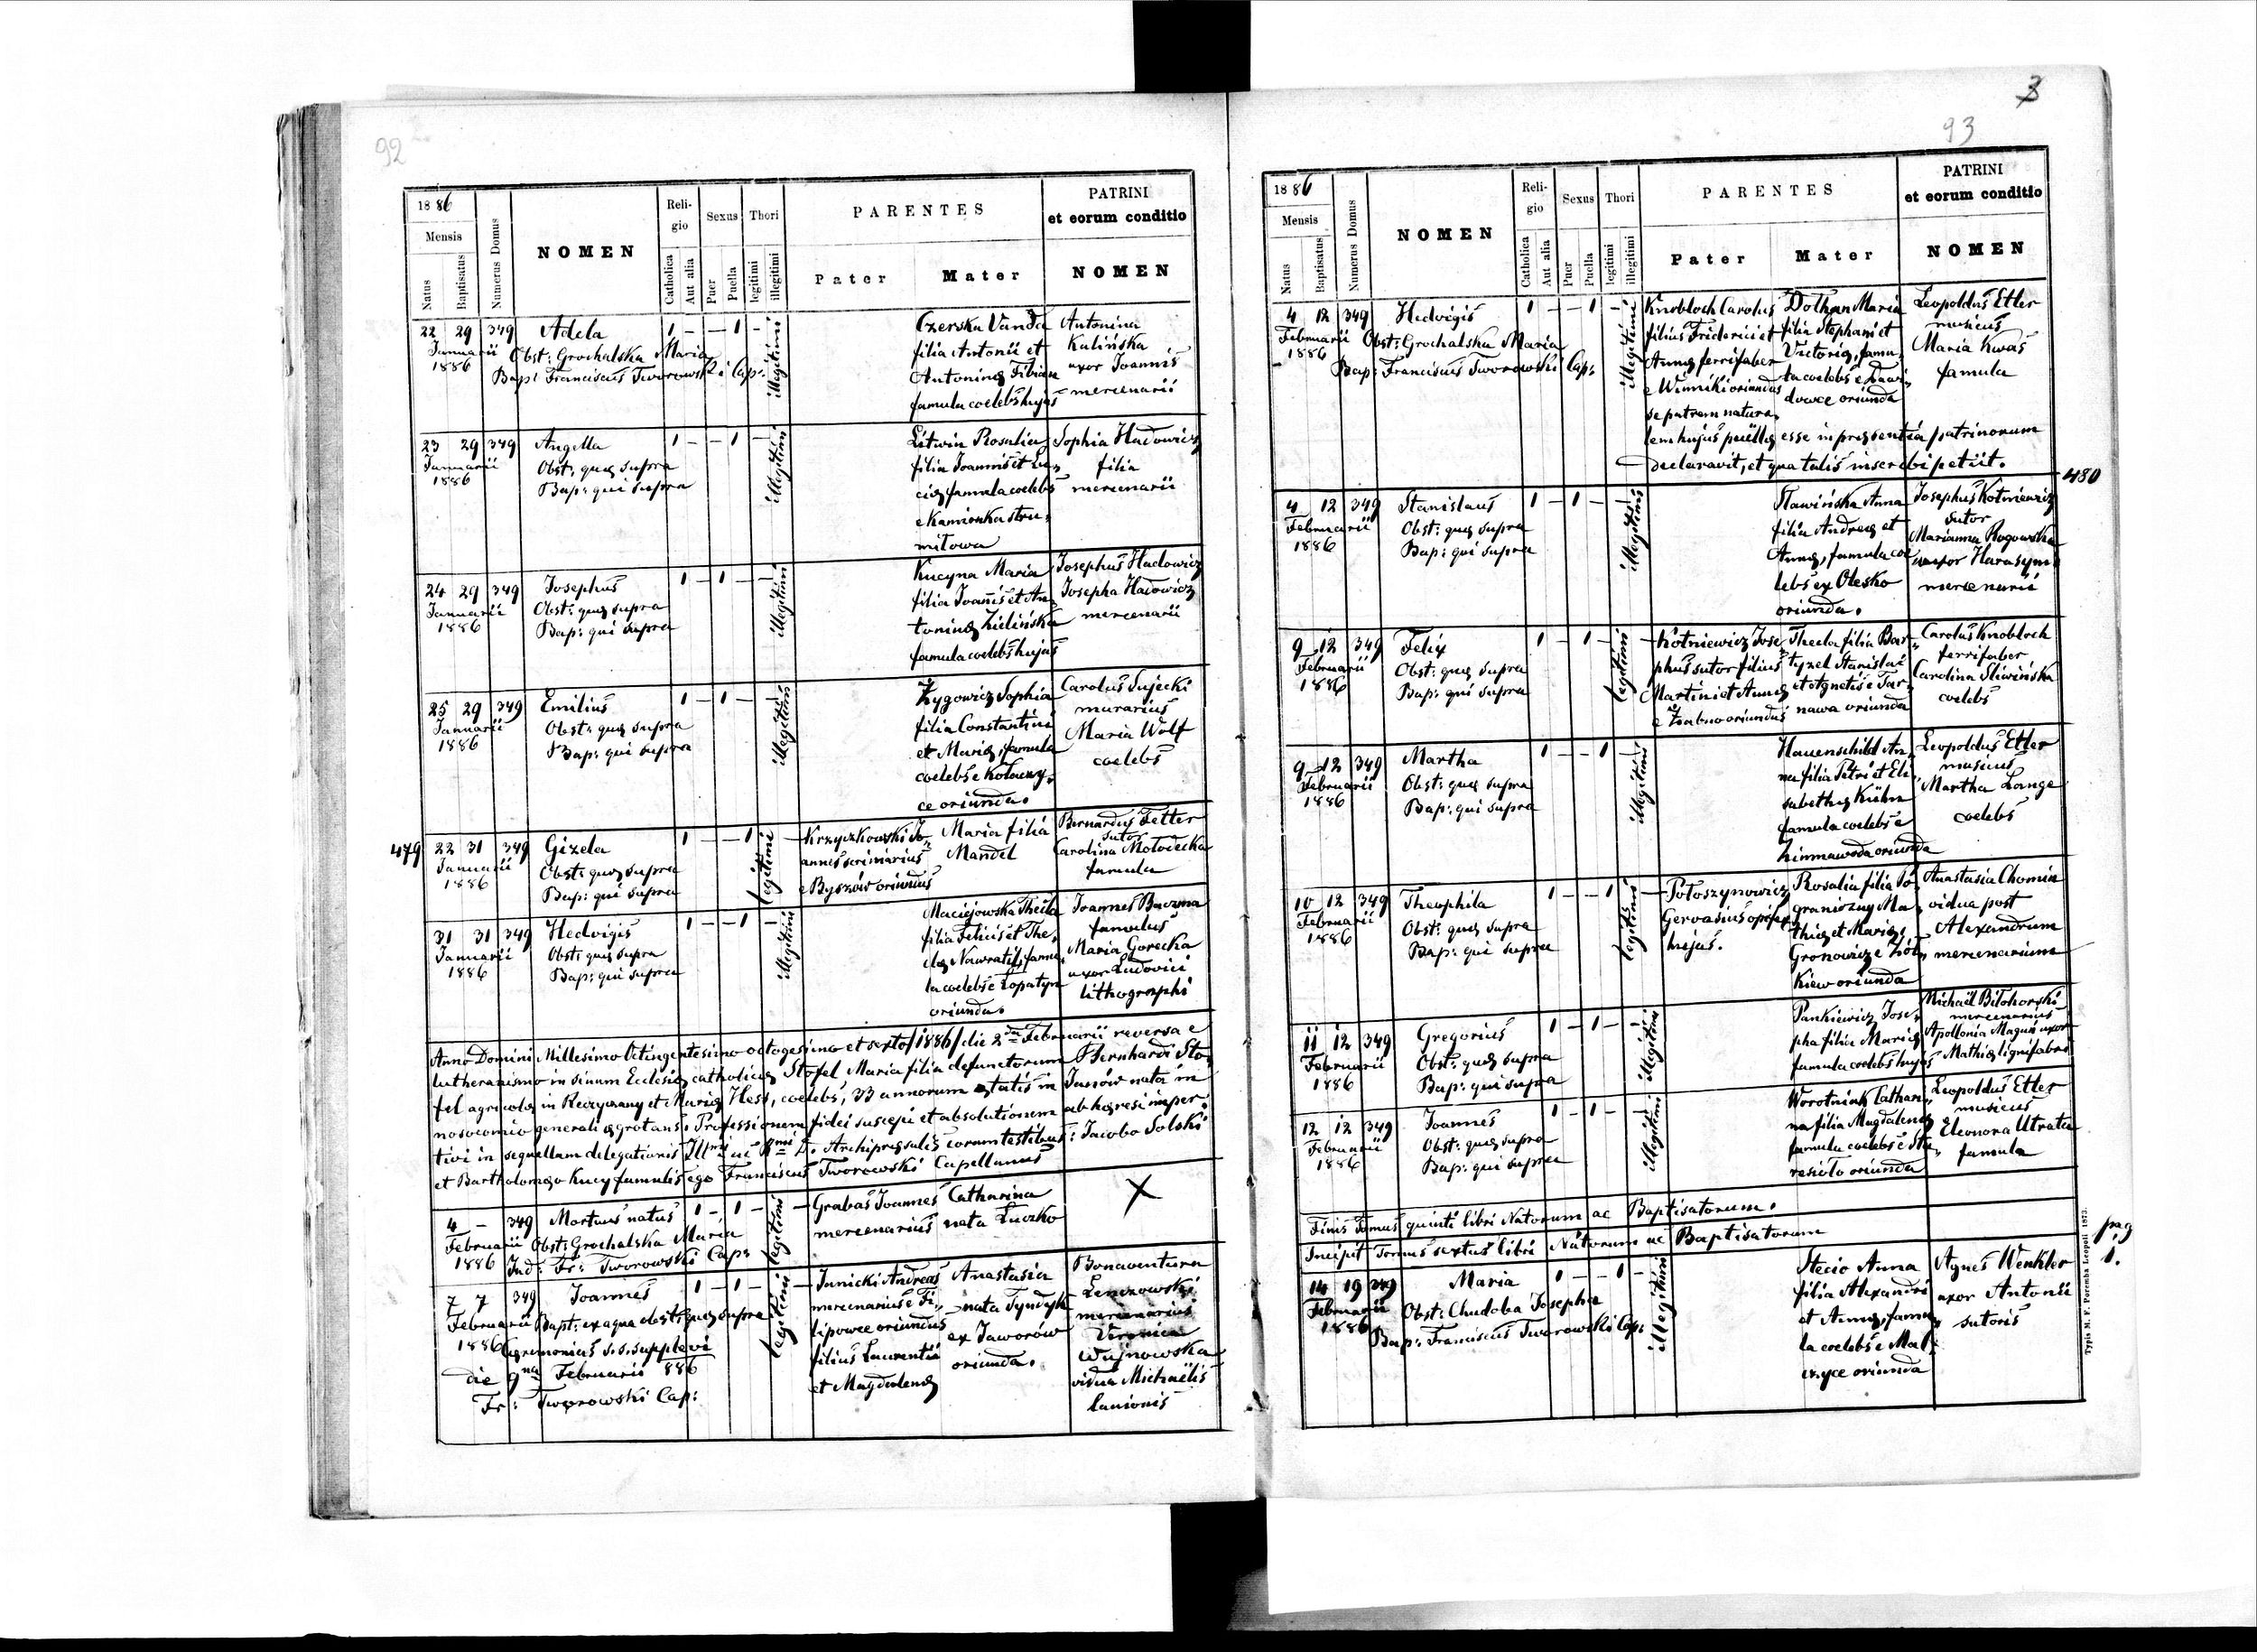 92
18 86
Mensis
Natus
Baptisatus
Numerus Domus
NOMEN
Reli-
gio
Catholica
Aut alia
Sexus
Puer
Puella
Thori
legitimi
illegitimi
PARENTES
Pater
Mater
PATRINI
et eorum conditio
NOMEN
22 29 349 Adela 1 – – 1 –
Januarii
1886
Obst: Grochalska Maria
Bap: Franciscus Tworowski Cap:
illegitimi
Czerska Vanda
filia Antonii et
Antoninę
famula coelebs hujas
Antonina
Kulińska
uxor Joannis
mercenarii
23 29 349 Angella 1 – – 1 –
Januarii
1886
Obst: quę supra
Bap: qui supra
illegitimi
Litwin Rosalia
filia Joannis et Lu,
cię famula coelebs
e Kamionka stru,
miłowa
Sophia Hadowicz
filia
mercenarii
24 29 349 Josephus 1 – 1 – –
Januarii
1886
Obst: quę supra
Bap: qui supra
illegitimi
Kucyna Maria
filia Joannis et An,
toninę Zielińska
famula coelebs hujas
Josephus Hadowicz
Josepha Hadowicz
mercenarii
25 29 349 Emilius 1 – 1 – –
Januarii
1886
Obst: quę supra
Bap: qui supra
illegitimi
Żygowicz Sophia
filia Constantini
et Marię, famula
coelebs e
ce oriunda.
Carolus Sujecki
murarius
Maria Wolf
coelebs
479
22 31 349 Gizela 1 – – 1 –
Januarii
1886
Obst: quę supra
Bap: qui supra
legitimi
Krzyczkowski Jo,
annes scriniarius
e Byszów oriundus
Maria filia
Mandel
Bernardus Fetter
sutor
Carolina Mołodecka
famula
31 31 349 Hedvigis 1 – – 1 –
Januarii
1886
Obst: quę supra
Bap: qui supra
illegitimi
Maciejowska Thecla
filia Felicis et The,
clę Nawratil, famu,
la coelebs e Łopatyn
oriunda.
Joannes Baczma
famulus
Maria Gorecka
uxor Ludovici
lithographi
Anno Domini Millesimo Octingentesimo octogesimo et sexto /1886/ die 2da Februarii reversa e
lutheranismo in sinum Ecclesię catholicę Stofel Maria filia defunctorum Bernhardi Sto,
fel agricolę in Reczyczany et Marię Hess, coelebs, 33 annorum ętatis in Janów nata in
nosocomio generali ęgrotans. Professionem fidei suscepi et absolutionem ab hęresi imper,
tivi in sequellam delegationis Illmi ac Rmi D. Archipręsulis coram testibus: Jacobo Solski
et Bartholomęo Kucy famulis ego Franciscus Tworowski Capellanus
4 – 349 Mortuus natus 1 – 1 – –
Februarii
1886
Obst: Grochalska Maria
Ind: Fr: Tworowski Cap:
legitimi
Grabas Joannes
mercenarius
Catharina
nata Łuczko
X
7 7 349 Joannes 1 – 1 – –
Februarii
1886
Bapt: ex aqua obst: quę supra
Cęremonias s.s. supplevi
die 9na Februarii 886
Fr: Tworowski Cap:
legitimi
Janicki Andreas
mercenarius e Fi,
lipowce oriundus
filius Laurentii
et Magdalenę
Anastasia
nata Tyndyk
ex Jaworów
oriunda.
Bonaventura
Lenczowski
mercenarius
Veronica
Wujnowska
vidua Michaëlis
lanionis
3
93
18 86
Mensis
Natus
Baptisatus
Numerus Domus
NOMEN
Reli-
gio
Catholica
Aut alia
Sexus
Puer
Puella
Thori
legitimi
illegitimi
PARENTES
Pater
Mater
PATRINI
et eorum conditio
NOMEN
4 12 349 Hedvigis 1 – – 1 –
Februarii
1886
Obst: Grochalska Maria
Bap: Franciscus Tworowski Cap:
illegitimi
Knobloch Carolus
filius Friderici et
Annę ferrifaber
e Winniki oriundus
se patrem natura,
lem hujus puellę esse in pręsentia patrinorum
declaravit, et qua talis inscribi petiit.
Dołhan Maria
filia Stephani et
Victorię, famu,
la coelebs e Dawi,
dowce oriunda
Leopoldus Etler
musicus
Maria Kwas
famula
480
4 12 349 Stanislaus 1 – 1 – –
Februarii
1886
Obst: quę supra
Bap: qui supra
illegitimi
Sławińska Anna
filia Andreę et
Annę, famula coe
lebs ex Olesko
oriunda.
Josephus Kotniewicz
sutor
Marianna Rogowska
uxor Harasym
mercenarii
9 12 349 Felix 1 – 1 – –
Februarii
1886
Obst: quę supra
Bap: qui supra
legitimi
Kotniewicz Jose,
phus sutor filius
Martini et Annę
e Żabno oriundus
Thecla filia Bar,
tyzel Stanislai
et Agnetis e Tar,
nawa oriunda
Carolus Knobloch
ferrifaber
Carolina Śliwińska
coelebs
9 12 349 Martha 1 – – 1 –
Februarii
1886
Obst: quę supra
Bap: qui supra
illegitimi
Hauenschild An,
na filia Petri et Eli,
sabethę Kühn
famula coelebs e
Zimnawoda oriunda
Leopoldus Etler
musicus
Martha Lange
coelebs
10 12 349 Theophila 1 – – 1 –
Februarii
1886
Obst: quę supra
Bap: qui supra
legitimi
Potoszynowicz
Gervasius opifex
hujas.
Rosalia filia Po,
graniczny Ma,
thię et Marię
Gronowicz e Żół,
kiew oriunda
Anastasia Chomin
vidua post
Alexandrum
mercenarium
11 12 349 Gregorius 1 – 1 – –
Februarii
1886
Obst: quę supra
Bap: qui supra
illegitimi
Pankiewicz Jose,
pha filia Marię
famula coelebs hujas
Michaël Biłohorski
mercenarius
Apollonia Magus uxor
Mathię lignifabri
12 12 349 Joannes 1 – 1 – –
Februarii
1886
Obst: quę supra
Bap: qui supra
illegitimi
Worotniak Cathari,
na filia Magdalenę
famula coelebs e Sta,
resioło oriunda
Leopoldus Etler
musicus
Eleonora Utrata
famula
Finis Tomus quinti libri Natorum ac Baptisatorum.
Incipit Tomus sextus libri Natorum ac Baptisatorum
pag
1.
14 19 349 Maria 1 – – 1 –
Februarii
1886
Obst: Chudoba Josepha
Bap: Franciscus Tworowski Cap:
illegitimi
Stecio Anna
filia Alexandri
et Annę, famu,
la coelebs e Mal,
czyce oriunda
Agnes Wenkler
uxor Antonii
sutoris
Typis M. F. Poremba Leopoli 1873.